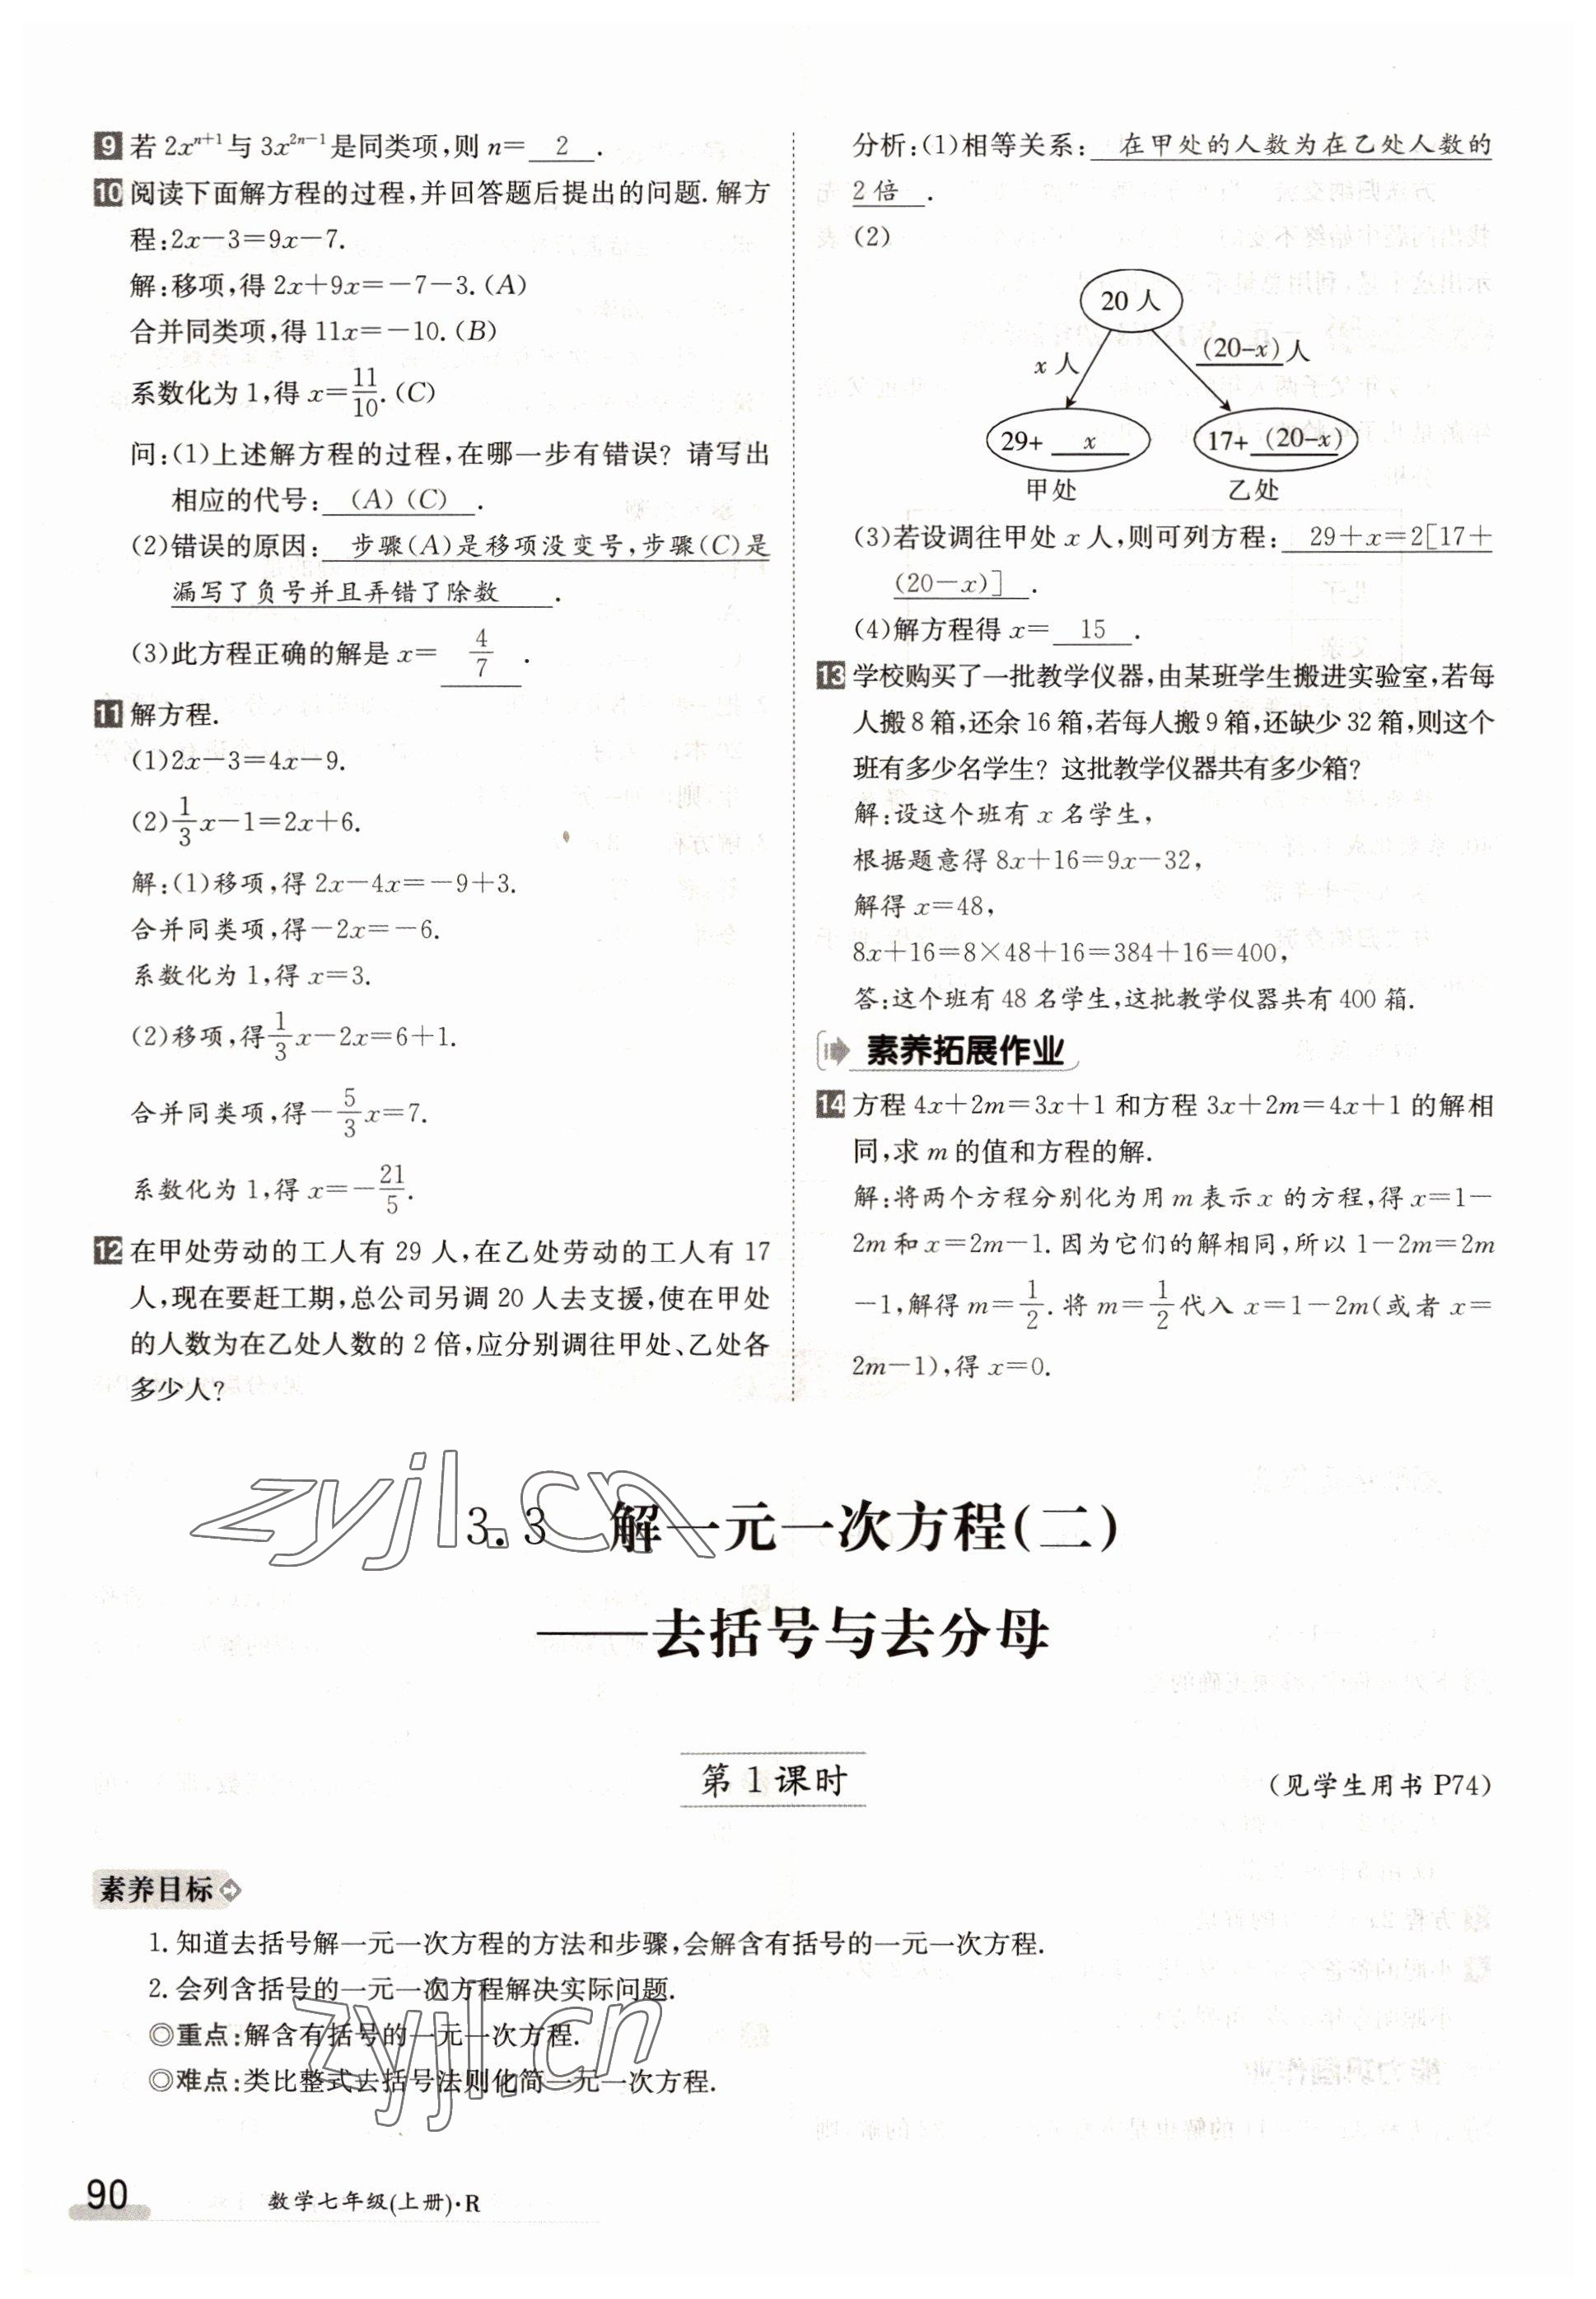 9 若2xⁿ⁺¹与3x²ⁿ⁻¹是同类项,则n= 2 .
10 阅读下面解方程的过程,并回答题后提出的问题.解方
程:2x-3=9x-7.
解:移项,得2x+9x=-7-3.(A)
合并同类项,得11x=-10.(B)
系数化为1,得x=11/10.(C)
问:(1)上述解方程的过程,在哪一步有错误?请写出
相应的代号: (A)(C) .
(2)错误的原因: 步骤(A)是移项没变号,步骤(C)是
漏写了负号并且弄错了除数 .
(3)此方程正确的解是x= 4/7 .
11 解方程.
(1)2x-3=4x-9.
(2)1/3x-1=2x+6.
解:(1)移项,得2x-4x=-9+3.
合并同类项,得-2x=-6.
系数化为1,得x=3.
(2)移项,得1/3x-2x=6+1.
合并同类项,得-5/3x=7.
系数化为1,得x=-21/5.
12 在甲处劳动的工人有29人,在乙处劳动的工人有17
人,现在要赶工期,总公司另调20人去支援,使在甲处
的人数为在乙处人数的2倍,应分别调往甲处、乙处各
多少人?
分析:(1)相等关系: 在甲处的人数为在乙处人数的
2倍 .
(2)
20人
x人
(20-x)人
29+ x
17+ (20-x)
甲处
乙处
(3)若设调往甲处x人,则可列方程: 29+x=2[17+
(20-x)] .
(4)解方程得x= 15 .
13 学校购买了一批教学仪器,由某班学生搬进实验室,若每
人搬8箱,还余16箱,若每人搬9箱,还缺少32箱,则这个
班有多少名学生?这批教学仪器共有多少箱?
解:设这个班有x名学生,
根据题意得8x+16=9x-32,
解得x=48,
8x+16=8×48+16=384+16=400,
答:这个班有48名学生,这批教学仪器共有400箱.
素养拓展作业
14 方程4x+2m=3x+1和方程3x+2m=4x+1的解相
同,求m的值和方程的解.
解:将两个方程分别化为用m表示x的方程,得x=1-
2m和x=2m-1.因为它们的解相同,所以1-2m=2m
-1,解得m=1/2.将m=1/2代入x=1-2m(或者x=
2m-1),得x=0.
zyjl.cn
3.3 解一元一次方程(二)
——去括号与去分母
第1课时
(见学生用书P74)
素养目标
1.知道去括号解一元一次方程的方法和步骤,会解含有括号的一元一次方程.
2.会列含括号的一元一次方程解决实际问题.
◎重点:解含有括号的一元一次方程.
◎难点:类比整式去括号法则化简一元一次方程.
zyjl.cn
90
数学七年级(上册)·R